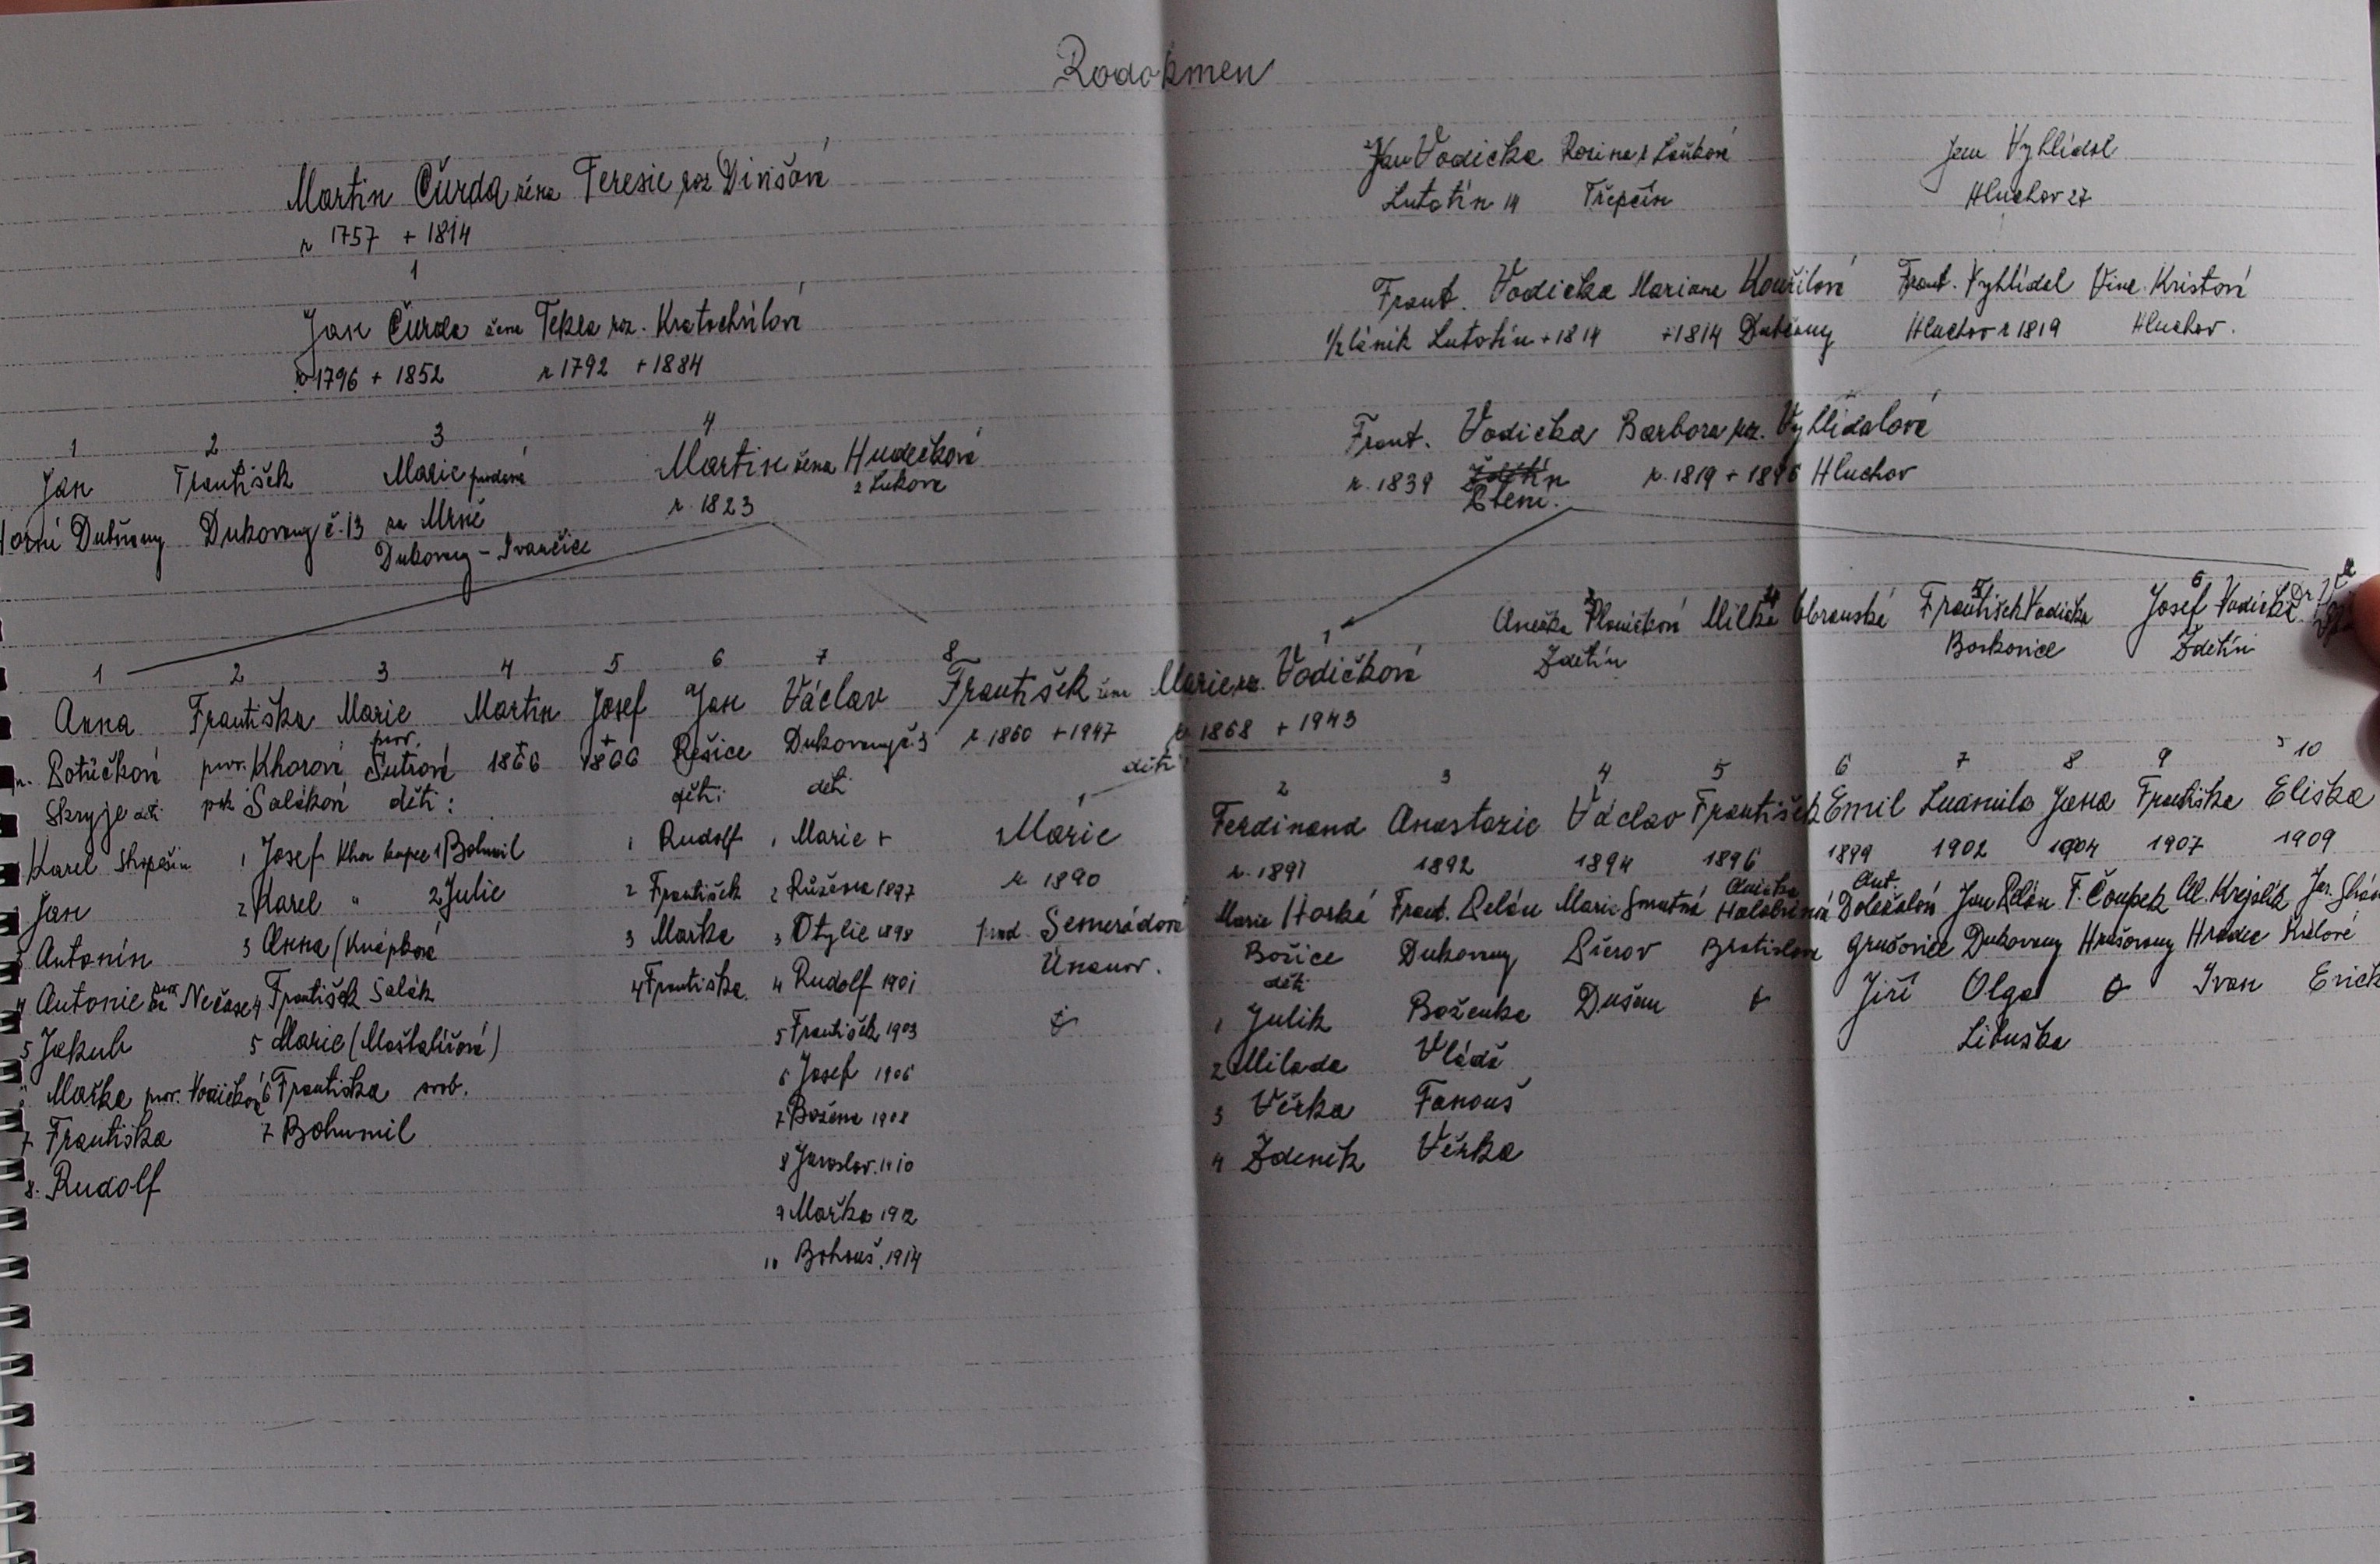 Rodokmen
Martin Čurda žena Teresie roz Divišová
n 1757 + 1814
1
Jan Čurda žena Tekla roz. Kratochvílová
n 1796 + 1852 n 1792 + 1884
1 2 3 4
Jan František Marie provdaná Martin žena Hudečková
z Lukova
Horní Dubňany Dukovany č. 13 za Mrně n. 1823
Dukovany - Ivančice
Jan Vodička Rosina Laŭková Jan Vyhlídal
Lutotín 14 Třepčín Hluchov 27
Frant. Vodička Mariana Kouřilová Frant. Vyhlídal Vinc. Kristová
1/2 láník Lutotín + 1814 + 1814 Dubčany Hluchov n 1819 Hluchov.
Frant. Vodička Barbora roz. Vyhlídalová
n. 1839 n. 1819 + 1896 Hluchov
Ptení.
Anežka Plouičková Milka Obranská František Vodička Josef Vodička Dr.
Zdětín Boskovice Zdětín
1 2 3 4 5 6 7 8 1
Anna Františka Marie Martin Josef Jan Václav František žena Marie roz. Vodičková
Potůčková prov. Khorová prov. Šutrová 1866 1866 Rešice Dukovany č. 3 n 1860 + 1947 n 1868 + 1943
Skryje děti pak Salákov děti: děti: děti děti
Karel Skrpěšín 1 Josef Khor kupec 1 Bohumil 1 Rudolf 1 Marie + Marie
Jan 2 Karel " 2 Julie 2 František 2 Růžena 1897 n 1890
Antonín 3 Anna (Knápková 3 Marka 3 Otylie 1898 prod. Semerádová
4 Antonie prov za Nečase 4 František Salák 4 Františka. 4 Rudolf 1901 Únanov.
5 Jakub 5 Marie (Maštalířová) 5 František 1903
Mařka prov. Vodičková 6 Františka svob. 6 Josef 1906
7 Františka 7 Bohumil 7 Božena 1908
8. Rudolf 8 Jaroslav. 1910
9 Mařka 1912
10 Bohouš. 1914
2 3 4 5 6 7 8 9 10
Ferdinand Anastazie Václav František Emil Ludmila Jana Františka Eliška
n. 1891 1892 1894 1896 1899 1902 1904 1907 1909
Marie Horká Frant. Pelán Marie Smutná Anežka Holobrádková Ant. Doležalová Jan Pelán F. Čoupek Al. Krejslík Jar.
Božice Dukovany Šierov Bratislava Grešovice Dukovany Hrušovany Hradec Králové
děti
1 Julik Boženka Dušan Jiří Olga Ivan Erick
2 Milada Vláďa Libuška
3 Věrka Fanouš
4 Zdeněk Věrka